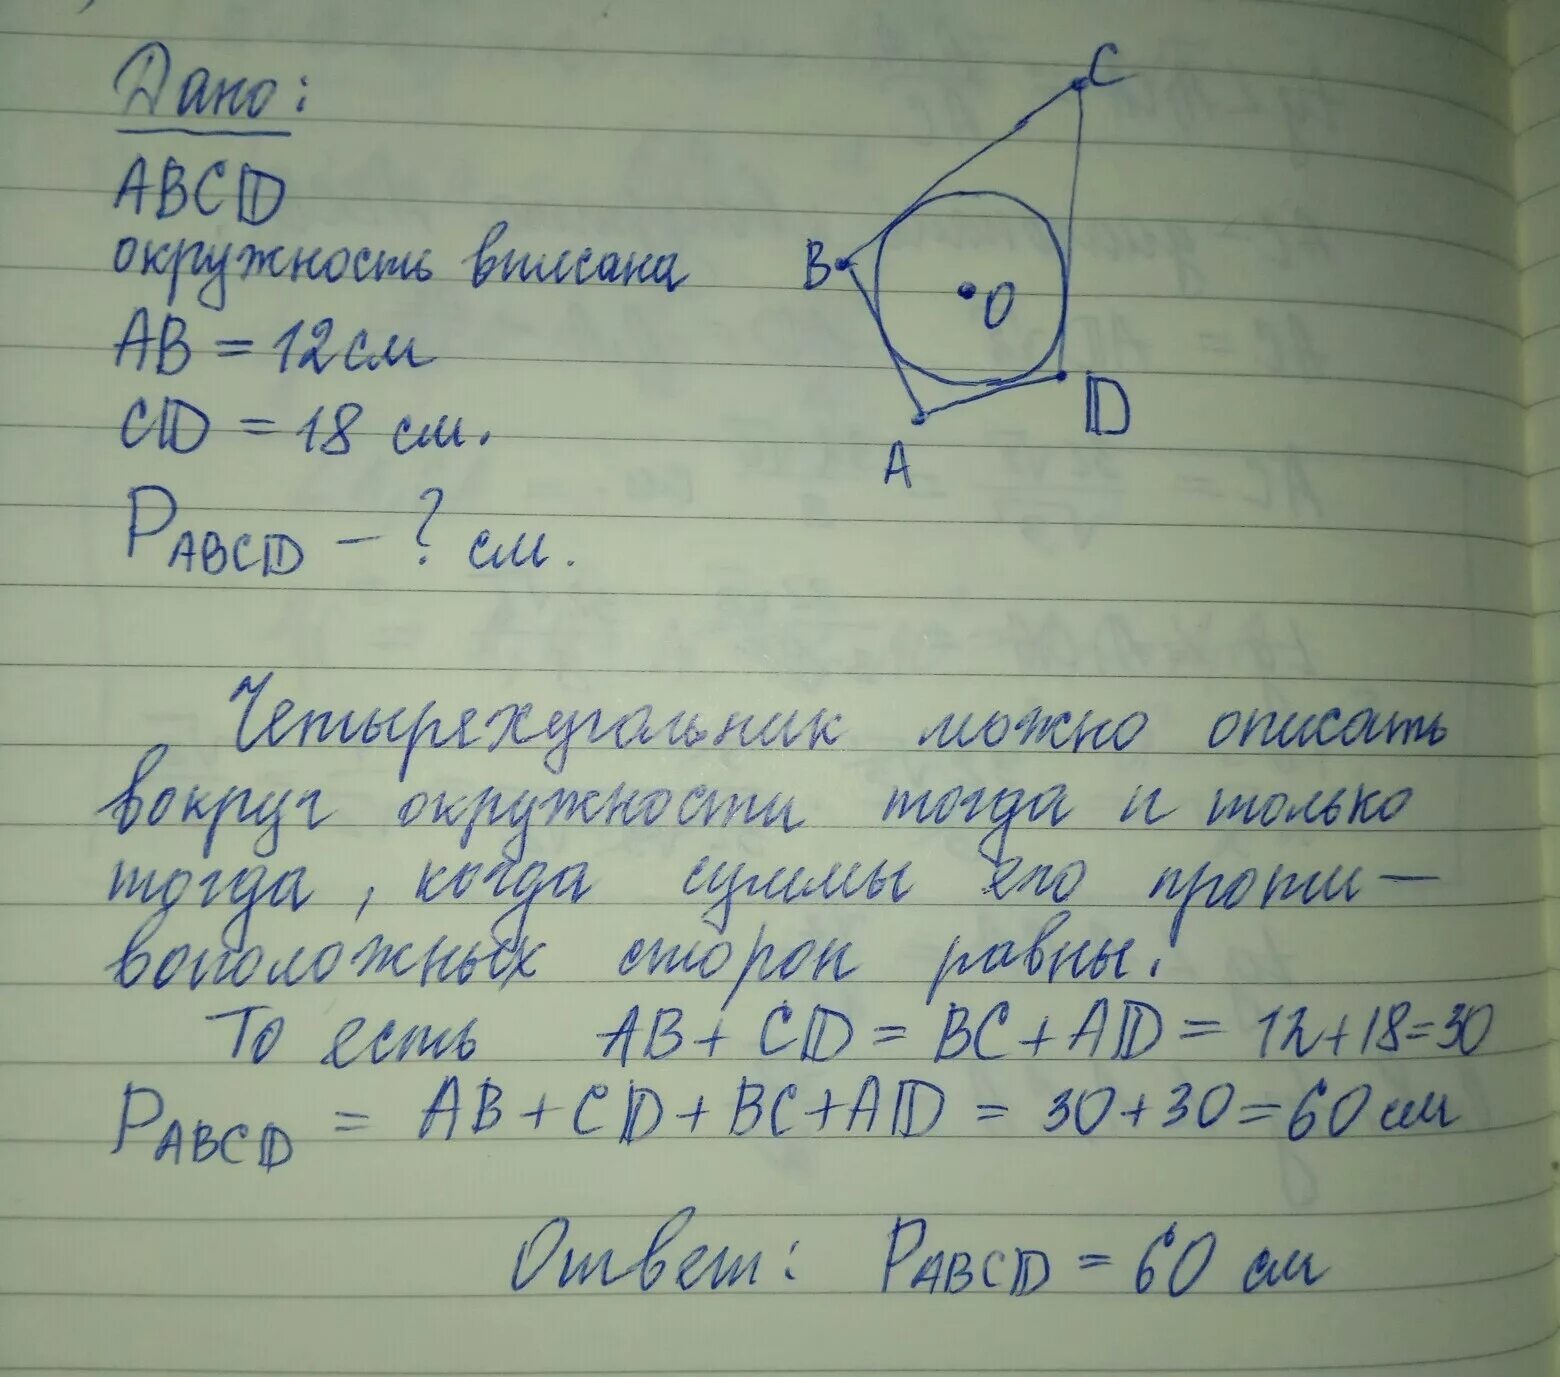 Дано:
ABCD
окружность вписана
AB = 12 см
CD = 18 см.
P ABCD - ? см.
C
B
O
D
A
Четырехугольник можно описать
вокруг окружности тогда и только
тогда, когда суммы его проти-
воположных сторон равны.
То есть AB + CD = BC + AD = 12 + 18 = 30
P ABCD = AB + CD + BC + AD = 30 + 30 = 60 см
Ответ: P ABCD = 60 см